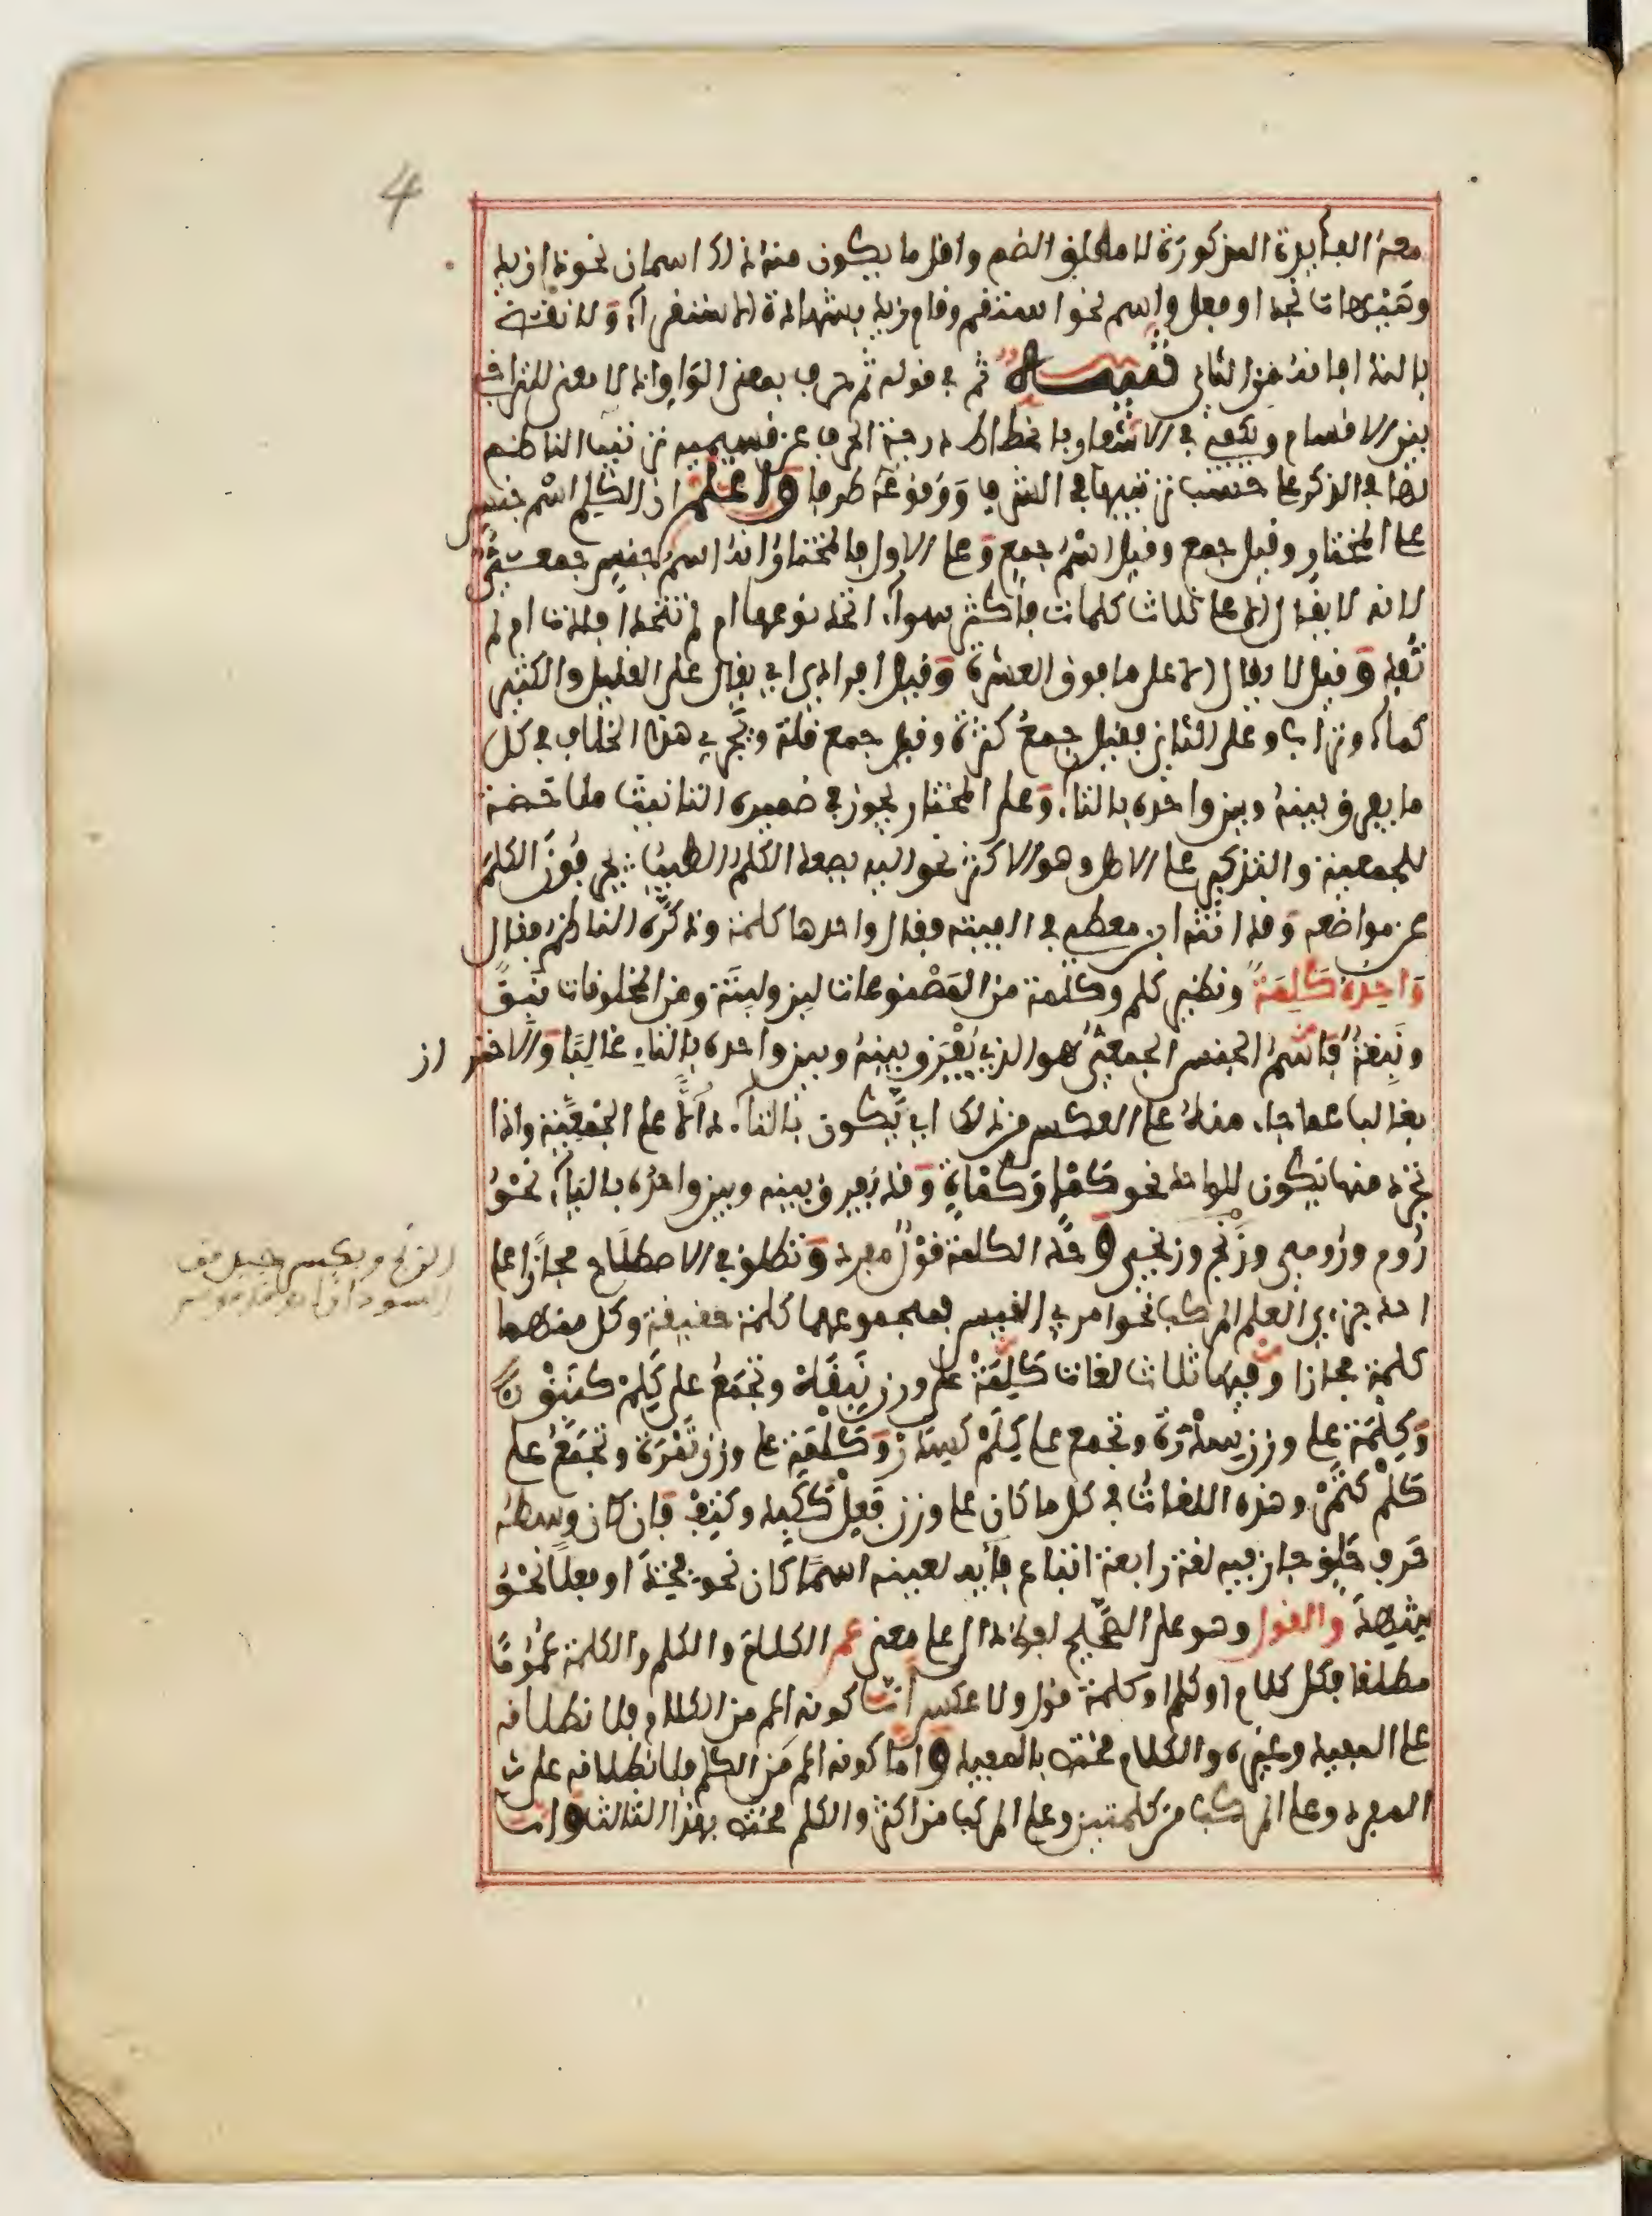 4
معه الفائدة المذكورة لا مطلق الضم واقل ما يكون منه ذلك اسمان نحو ذا زيد
وهيهات نجد او فعل واسم نحو استقم وقام زيد بشهادة الاستقراء ولا نقض
بالنداء فانه من الثاني تنبيه ثم في قوله ثم حرف بمعنى الواو اذ لا معنى للتراخي
بين الاقسام ويكفي في الاشعار بانحطاط درجة الحرف عن قسيميه ترتيب الناظم
لها في الذكر على حسب ترتيبها في الشرف ووقوعه طرفا واعلم ان الكلم اسم جنس
على المختار وقيل جمع وقيل اسم جمع وعلى الاول فالمختار انه اسم جنس جمعي
لانه لا يقال الا على ثلاث كلمات فاكثر سواء اتحد نوعها ام لم تتحد افادت ام لم
تفد وقيل لا يقال الا على ما فوق العشرة وقيل افرادي اي يقال على القليل والكثير
كماء وتراب وعلى الثاني فقيل جمع كثرة وقيل جمع قلة ويجري هذا الخلاف في كل
ما يفرق بينه وبين واحده بالتاء وعلى المختار يجوز في ضميره التانيث ملاحظة
للجمعية والتذكير على الاصل وهو الاكثر نحو اليه يصعد الكلم الطيب يحرفون الكلم
عن مواضعه وقد انثه ابن معطي في الفيته فقال واحدها كلمة وذكره الناظم فقال
واحده كلمة ونظير كلم وكلمة من المصنوعات لبن ولبنة ومن المخلوقات نبق
ونبقة فاسم الجنس الجمعي هو الذي يفرق بينه وبين واحده بالتاء غالبا والاحتراز
بغالبا عما جاء منه على العكس من ذلك اي يكون بالتاء دالا على الجمعية واذا
تجرد منها يكون للواحد نحو كمء وكماة وقد يفرق بينه وبين واحده بالياء نحو
روم ورومي وزنج وزنجي وحد الكلمة قول مفرد وتطلق في الاصطلاح مجازا على
احد جزءي العلم المركب نحو امرئ القيس فمجموعهما كلمة حقيقة وكل منهما
كلمة مجازا وفيها ثلاث لغات كلمة على وزن نبقة وتجمع على كلم كنبق
وكلمة على وزن سدرة وتجمع على كلم كسدر وكلمة على وزن تمرة وتجمع على
كلم كتمر وهذه اللغات في كل ما كان على وزن فعل ككبد وكتف فان كان وسطه
حرف حلق جاز فيه لغة رابعة اتباع فائه لعينه اسما كان نحو فخذ او فعلا نحو
شهد والقول وهو على الصحيح لفظ دال على معنى عم الكلام والكلم والكلمة عموما
مطلقا فكل كلام او كلم او كلمة قول ولا عكس اما كونه اعم من الكلام فلانطلاقه
على المفيد وغيره والكلام مختص بالمفيد واما كونه اعم من الكلم فلانطلاقه على
المفرد وعلى المركب من كلمتين وعلى المركب من اكثر والكلم مختص بهذا الثالث واما
الزنج ويكسر جيل من
السودان